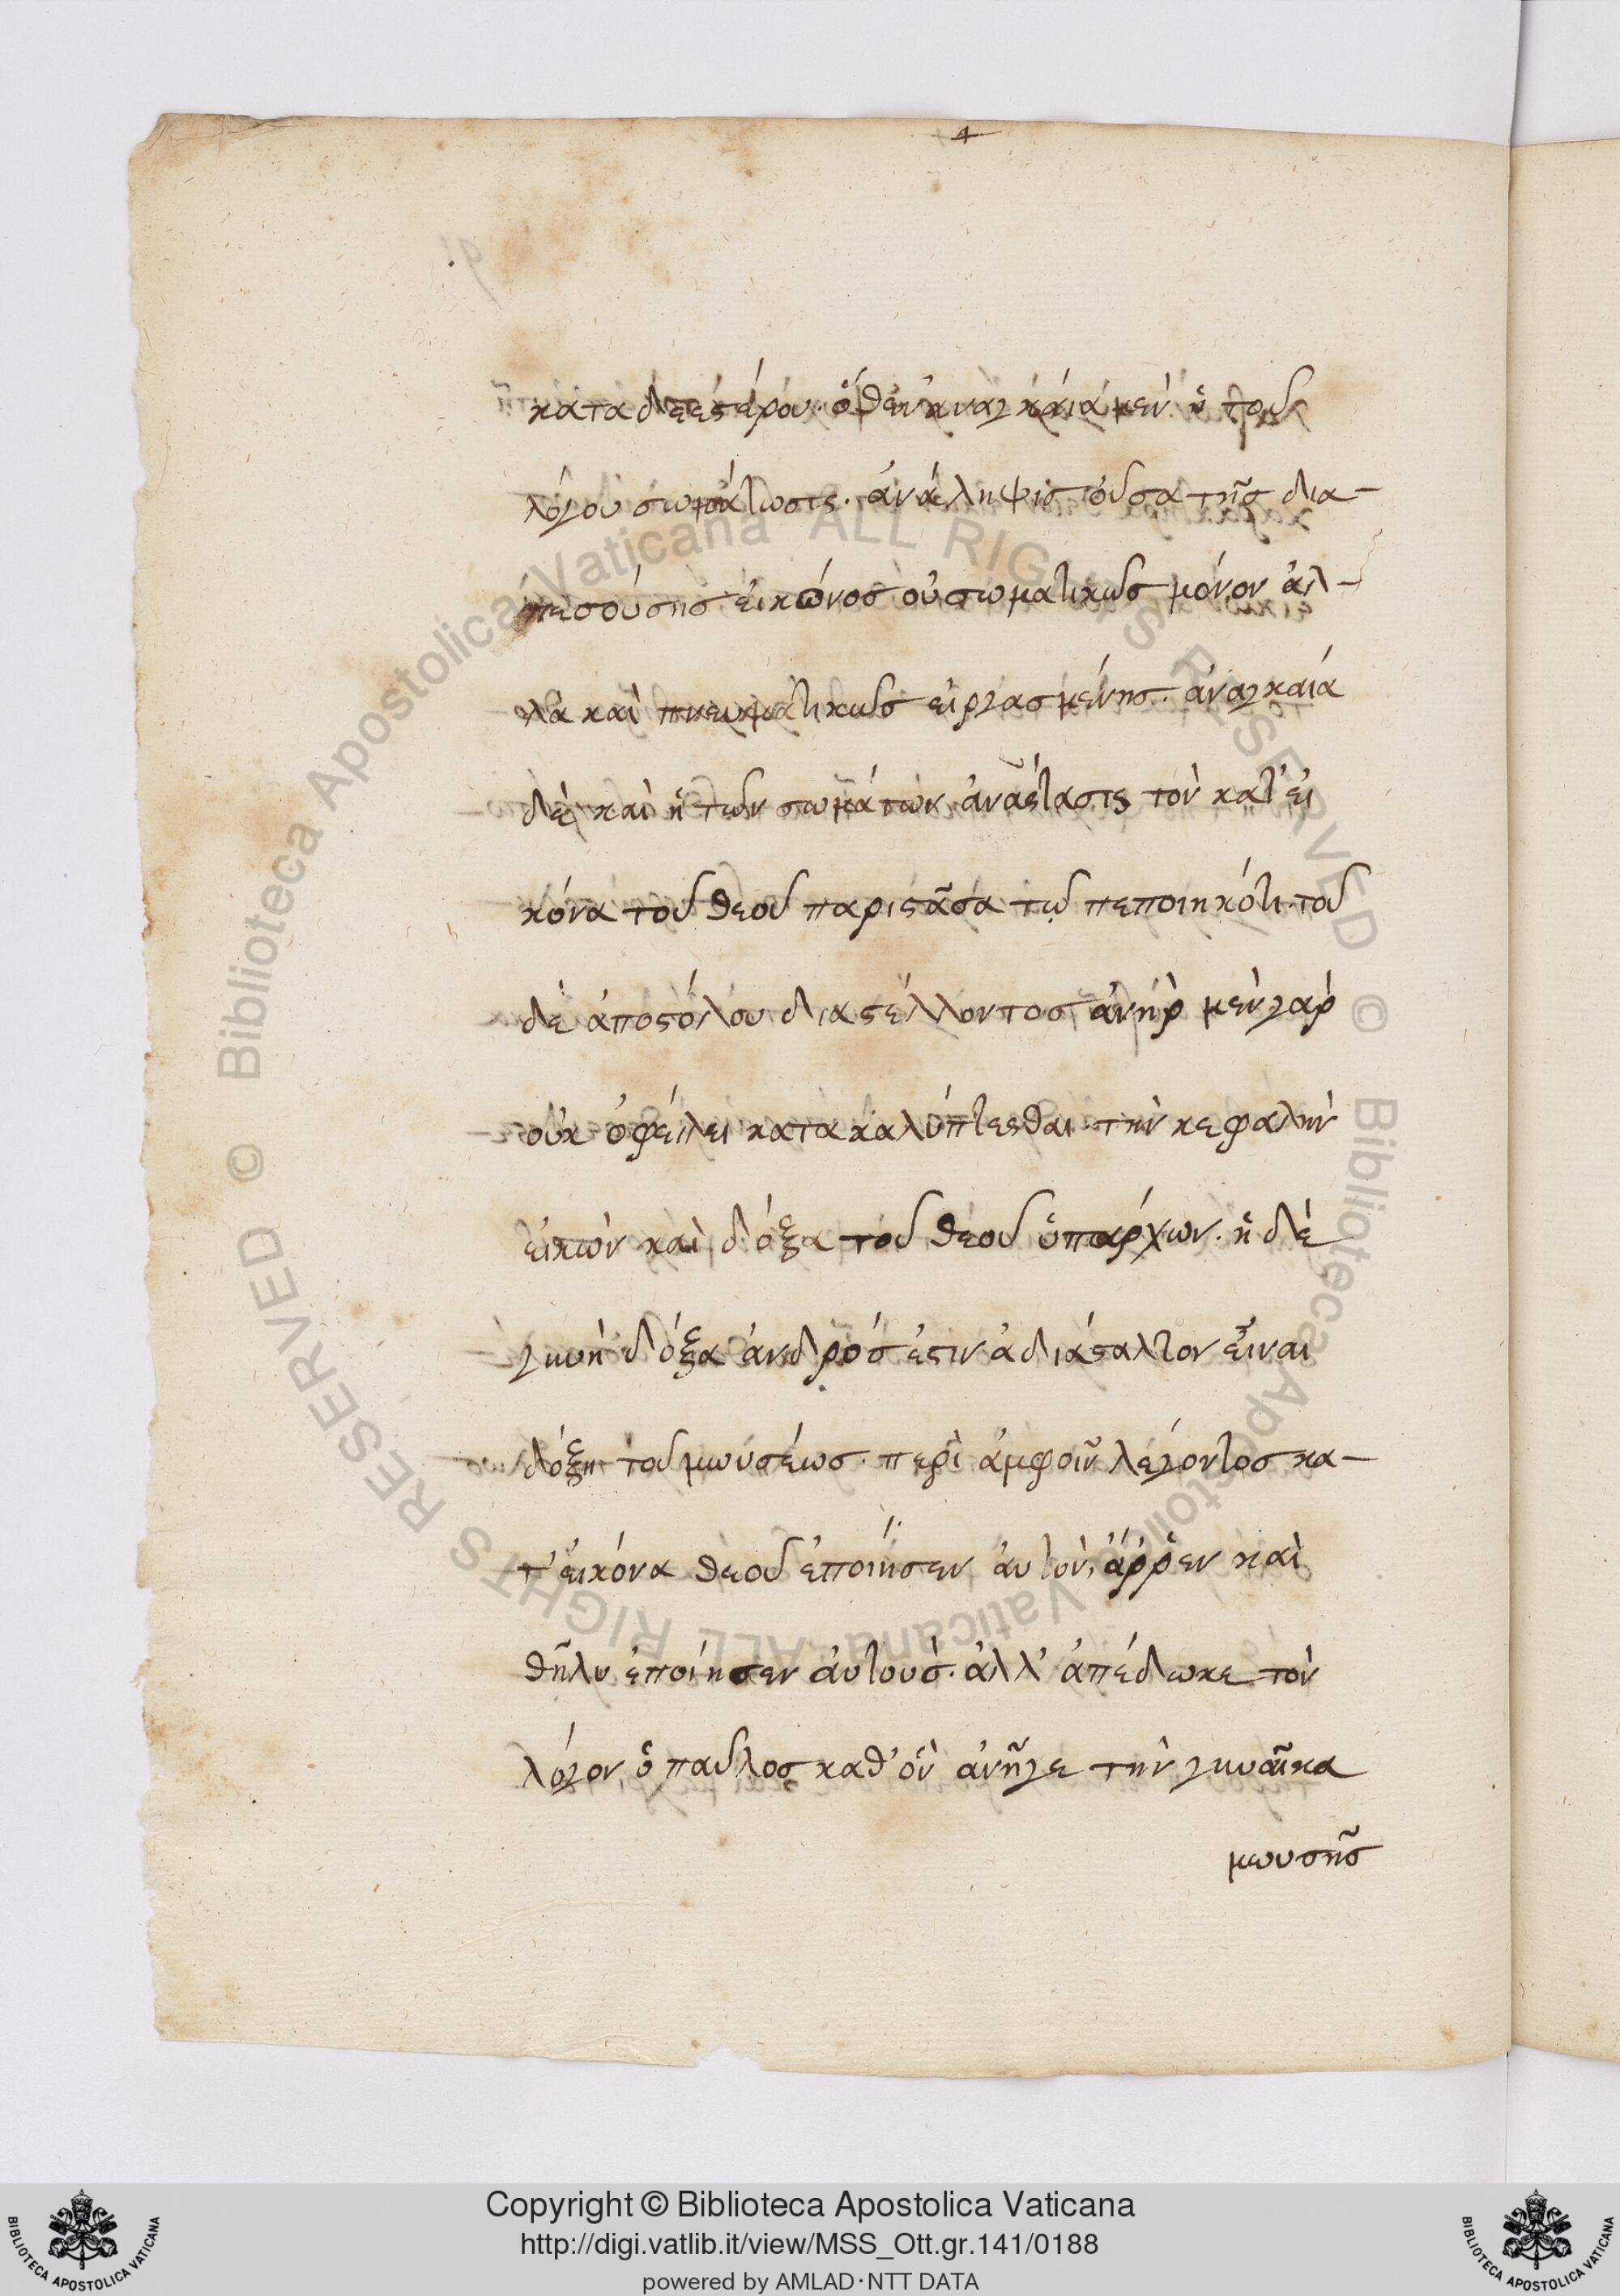 κατὰ δεέστερον. ὅθεν ἀναγκάια μὲν ἡ τοῦ
λόγου σωμάτωσις. ἀνάληψις οὖσα τῆς δια-
πεσούσης ἐικόνος οὐ σωματικῶς μόνον ἀλ-
λὰ καὶ πνευματικῶς ἐιργασμένης. ἀναγκαιά
δὲ καὶ ἡ τῶν σωμάτων ἀνάστασις τὸν κατ' ἐι
κόνα τοῦ θεοῦ παριστᾶσα τῷ πεποιηκότι. τοῦ
δὲ ἀποστόλου διαστέλλοντος ἀνὴρ μὲν γὰρ
οὐκ ὀφείλει κατακαλύπτεσθαι τὴν κεφαλὴν
ἐικὼν καὶ δόξα τοῦ θεοῦ ὑπάρχων. ἡ δὲ
γυνὴ δόξα ἀνδρός ἐστιν ἀδιάσταλτον εἶναι
δόξη τοῦ μωϋσέως. περὶ ἀμφοῖν λέγοντος κα-
τ' ἐικόνα θεοῦ ἐποίησεν ἀυτὸν, ἄρῥεν καὶ
θῆλυ ἐποίησεν ἀυτούς. ἀλλ' ἀπέδωκε τὸν
λόγον ὁ παῦλος καθ' ὃν ἀνῆγε τὴν γυναῖκα
μωυσῆς
Copyright © Biblioteca Apostolica Vaticana
http://digi.vatlib.it/view/MSS_Ott.gr.141/0188
powered by AMLAD·NTT DATA
© Biblioteca Apostolica Vaticana ALL RIGHTS RESERVED
© Biblioteca Apostolica Vaticana ALL RIGHTS RESERVED
BIBLIOTECA APOSTOLICA VATICANA
BIBLIOTECA APOSTOLICA VATICANA